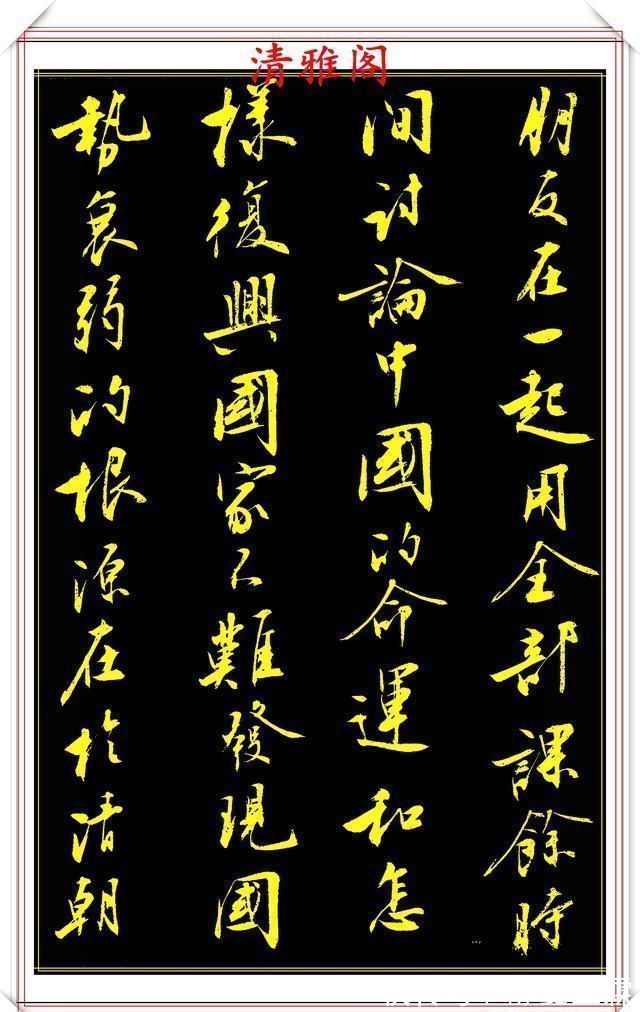 清雅阁
朋友在一起用全部課餘時
间討論中國的命運和怎
樣復興國家不難發現國
势衰弱的根源在於清朝